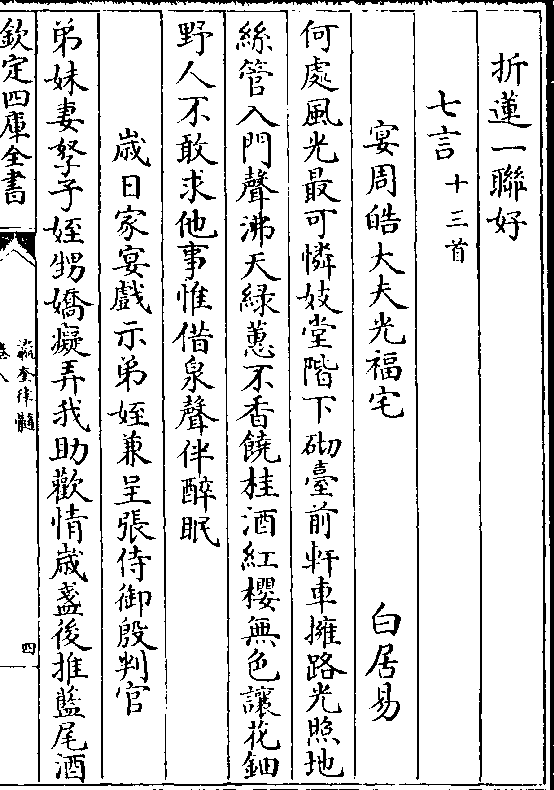 折蓮一聯好
七言十三首
宴周皓大夫光福宅　白居易
何處風光最可憐妓堂階下砌臺前軒車擁路光照地
絲管入門聲沸天綠蕙不香饒桂酒紅櫻無色讓花鈿
野人不敢求他事惟借泉聲伴醉眠
歳日家宴戲示弟姪兼呈張侍御殷判官
弟妹妻孥子姪甥嬌癡弄我助歡情歳盞後推藍尾酒
欽定四庫全書
瀛奎律髓
卷八
四